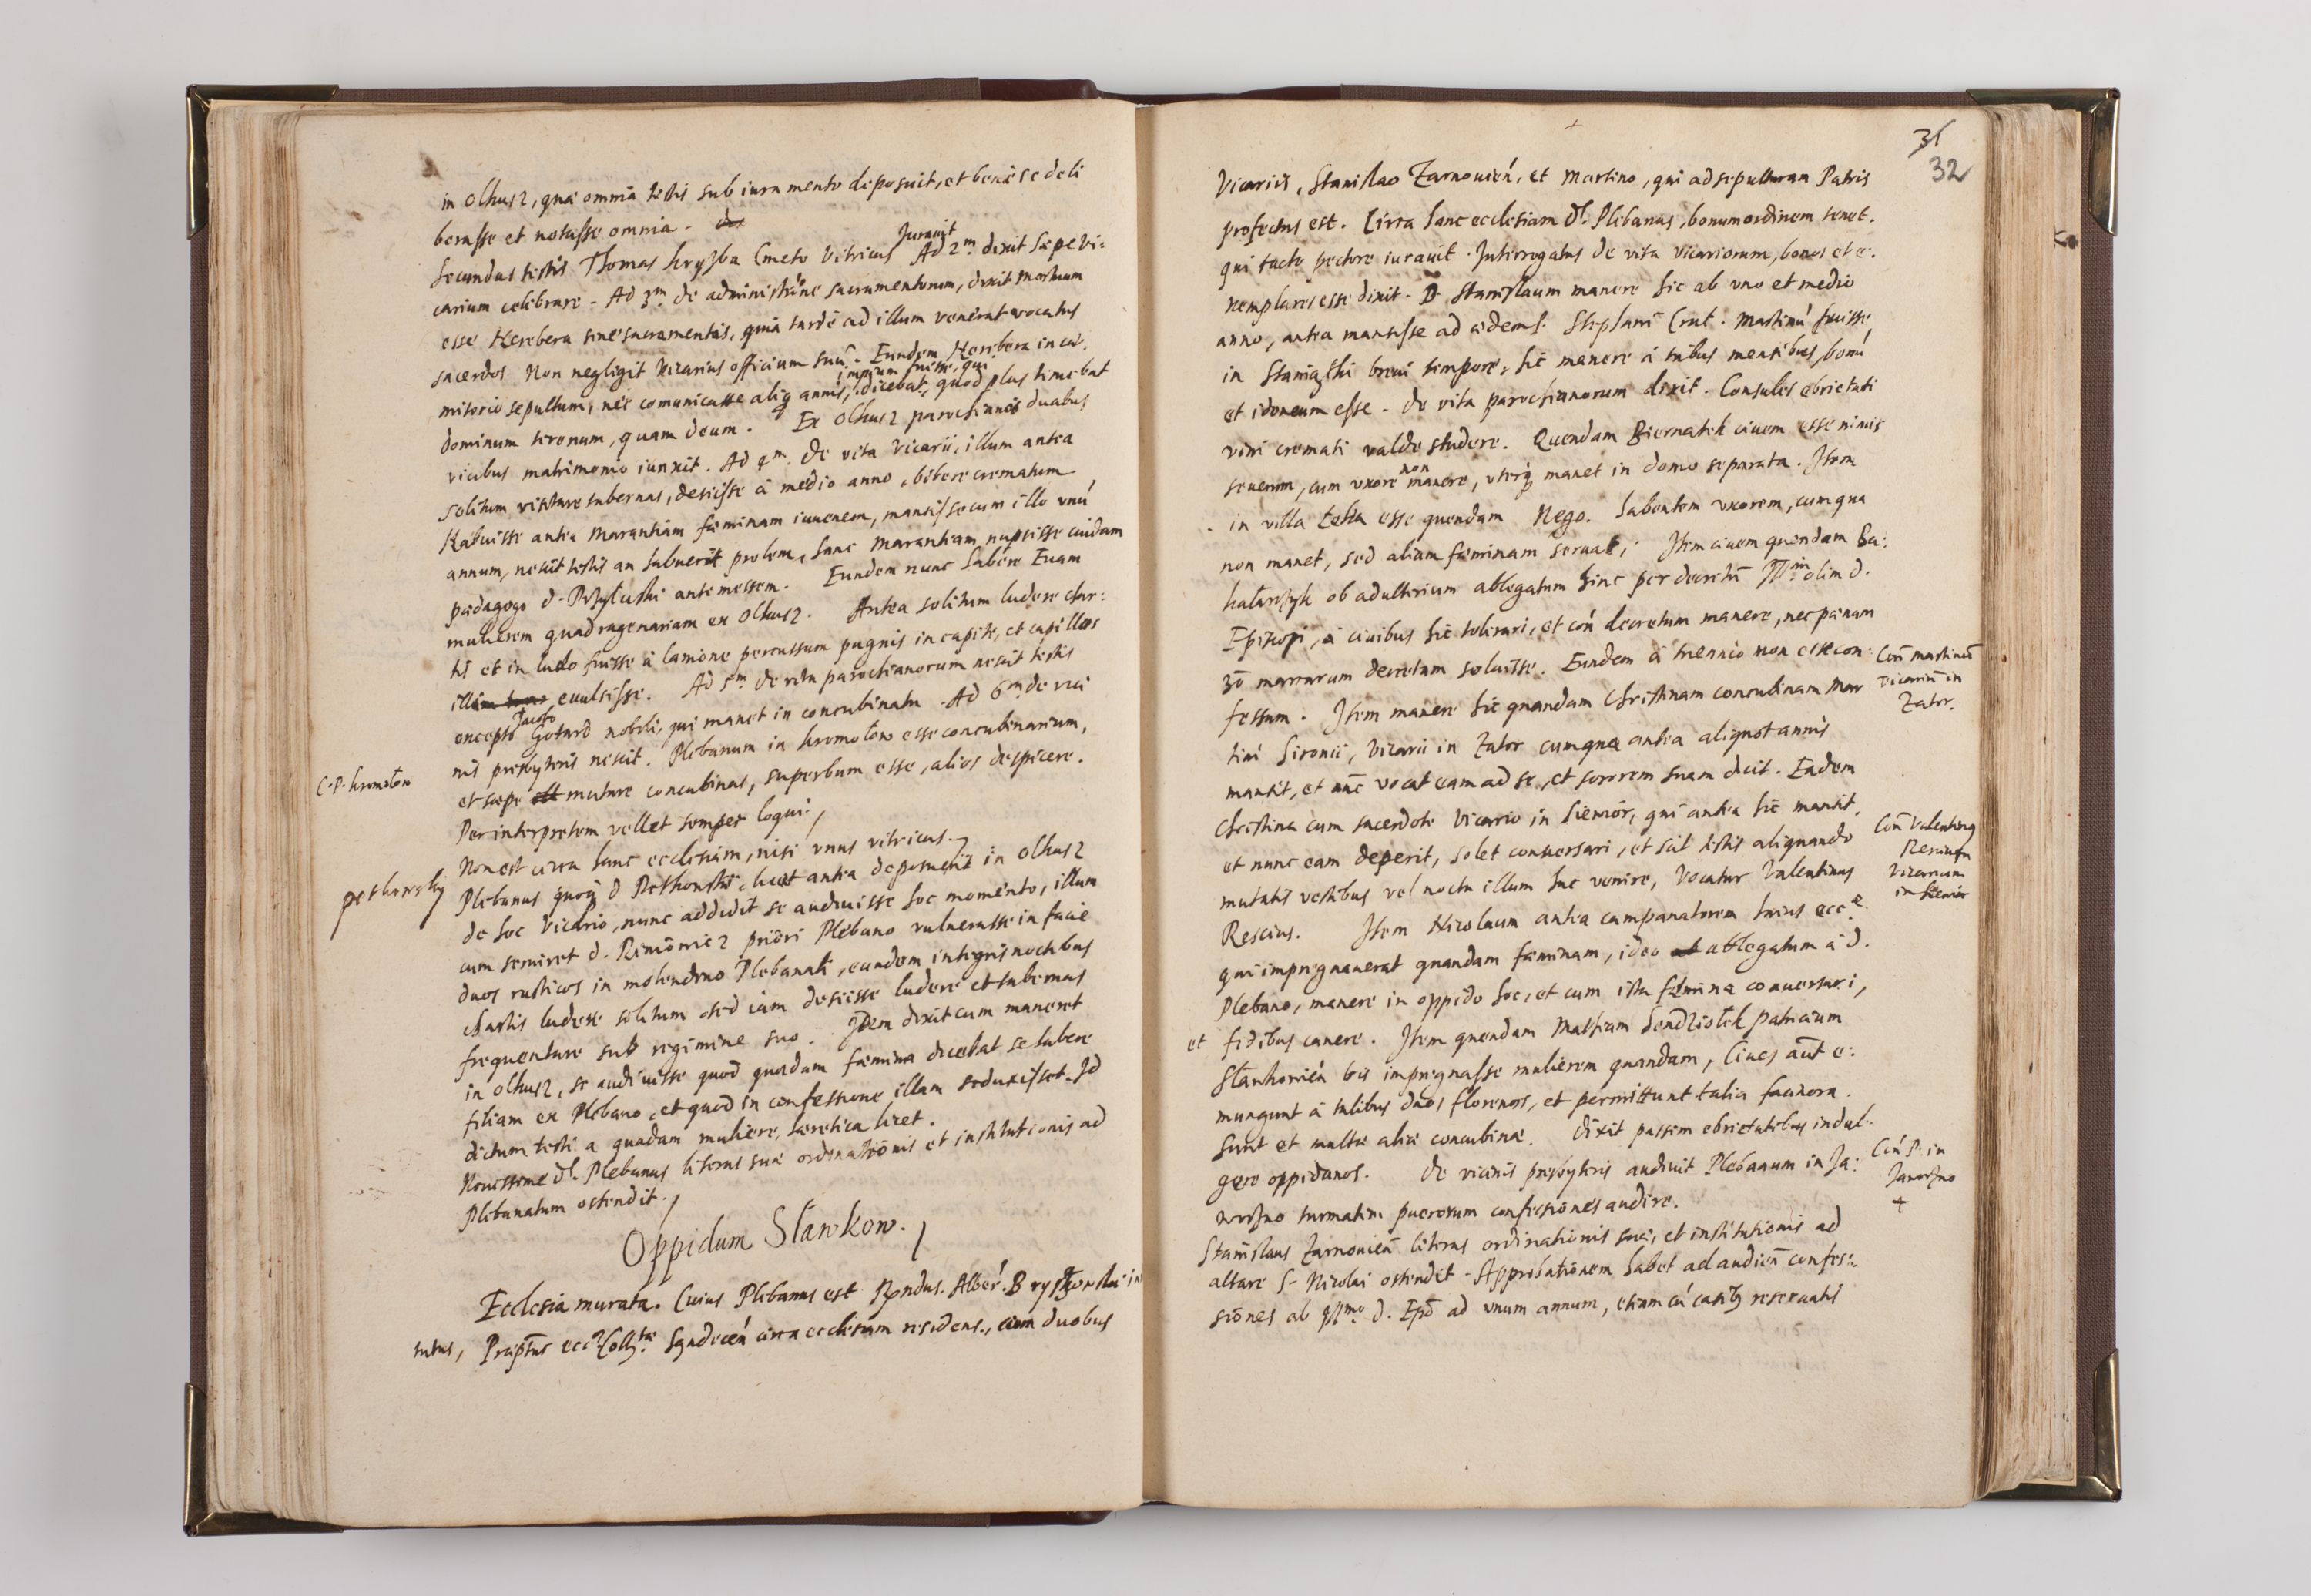 in Olkusz, quae omnia testis sub iuramento deposuit, et bene se deli
berasse et notasse omnia.
Jurauit
Secundus testis Thomas kryzba Cmeto Vitricus Ad 2m. dixit saepe vi:
carium celebrare. Ad 3m. de administrãne sacramentorum, dixit mortuum
esse Herebera sine sacramentis, quia tardè ad illum venerat vocatus
sacerdos Non negligit Vicarius officium suũ. Eundem Herebera in cae:
impium fuisse, qui
miterio sepultum, nec comunicasse aliq annis, dicebat, quod plus timebat
dominum terenum, quam deum. Ex Olkusz parochianos duabus
vicibus matrimonio iunxit. Ad 4m. de vita Vicarii, illum antea
solitum visitare tabernas, desiisse á medio anno, bibere crematum
Habuisse antea Marantham faeminam iuuenem, mansisse cum illo vnũ
annum, nescit testis an habuerit prolem, hanc Marantham nupsisse cuidam
paedagogo d. Przyłuski ante messem. Eundem nunc habere Euam
mulierem quadragenariam ex Olkusz. Antea solitum ludere char:
tis et in ludo fuisse à lanione percussum pugnis in capite, et capillos
illi euulsisse. Ad 5m. de vita parochianorum nescit testis
Jacobo
excepto Gotard nobili, qui manet in concubinatu. Ad 6m. de vici
nis presbyteris nescit. Plebanum in kromołow esse concubinarium,
C. P. kromołow
et saepe mutare concubinas, superbum esse, alios despicere.
Per interpretem vellet semper loqui.
Non est circa hanc ecclesiam, nisi vnus vitricus.
petkowsky
Plebanus quoq d Petkowski, licet antea deposuerit in Olkusz
de hoc Vicario, nunc addidit se audiuisse hoc momento, illum
cum seruiret d. priori Plebano vulnerasse in facie
duos rusticos in molendino Plebanali, eundem integris noctibus
chartis ludere solitum sed iam desiisse ludere et tabernas
frequentare sub regimine suo. Idem dixit cum maneret
in Olkusz, se audiuisse quod quaedam faemina dicebat se habere
filiam ex Plebano, et quod in confessione illam seduxisset. Id
dictum testi a quadam muliere, haeretica licet.
Nouissime d. Plebanus literas suae ordinationis et institutionis ad
Plebanatum ostendit.
Oppidum Sławkow.
Ecclesia murata. Cuius Plebanus est Rndus. Alber. in
tutus, eccl Sandecen circa ecclesiam residens, cum duobus
31
32
Vicariis, Stanislao Zarnouień, et Martino, qui ad sepulturam Patris
profectus est. Circa hanc ecclesiam d. Plebanus, bonum ordinem tenet.
qui tacto pectore iurauit. Interrogatus de vita vicariorum, bonos et e:
xemplares esse dixit. D. Stanislaum manere hic ab vno et medio
anno, antea mansisse ad aedem S. Stephani Crac. Martinũ fuisse
in breui tempore, hic manere á tribus mensibus, bonũ
et idoneum esse. de vita parochianorum dixit. Consules ebrietati
vini cremati valde studere. Quendam Biernatek ciuem esse nimis
non
seuerum, cum vxore manere, vterq manet in domo separata. Item
in villa esse quendam Nego. habentem vxorem, cum qua
non manet, sed aliam faeminam seruat; Item ciuem quendam Ba:
kałarzyk ob adulterium ablegatum hinc per decretũ olim d.
Episcopi, à ciuibus hic tolerari, et coñ decretum manere, nec paenam
30 marcarum decretam soluisse. Eundem á triennio non esse con:
fessum. Item manere hic quandam Christinam concubinam Mar
Coñ martinũ
Vicariũ in
Zator.
tini Sironii, Vicarii in Zator cum qua antea aliquot annis
mansit, et nũc vocat eam ad se, et sororem suam dicit. Eadem
Christina cum sacerdote Vicario in Siewior, qui antea hic mansit,
et nunc eam deperit, solet conuersari, et scit testis aliquando
Coñ Valentinũ
Resciusm
Vicarium
in Siewior
mutatis vestibus vel noctu illum huc venire, Vocatur Valentinus
Rescius. Item Nicolaum antea campanatorem huius eccae
qui impregnauerat quandam faeminam, ideo ablegatum à d.
Plebano, manere in oppido hoc, et cum ista faemina conuersari,
et fidibus canere. Item quendam Mathiam Sendziolek patricium
Slawkouień bis impregnasse mulierem quandam, Ciues aũt e:
mungunt á talibus duos florenos, et permittunt talia facinora.
Sunt et multae aliae concubinae. Dixit passim ebrietatibus indul:
gere oppidanos. De vicinis presbyteris audiuit Plebanum in Ja:
Coñ P. in
Jaworzno
+
worzno turmatim puerorum confessiones audire.
Stanislaus Zarnouień literas ordinationis suae, et institutionis ad
altare S. Nicolai ostendit. Approbationem habet ad audieñ confes:
siones ab Illmo. d. Epõ ad vnum annum, etiam cũ casibq reseruatis